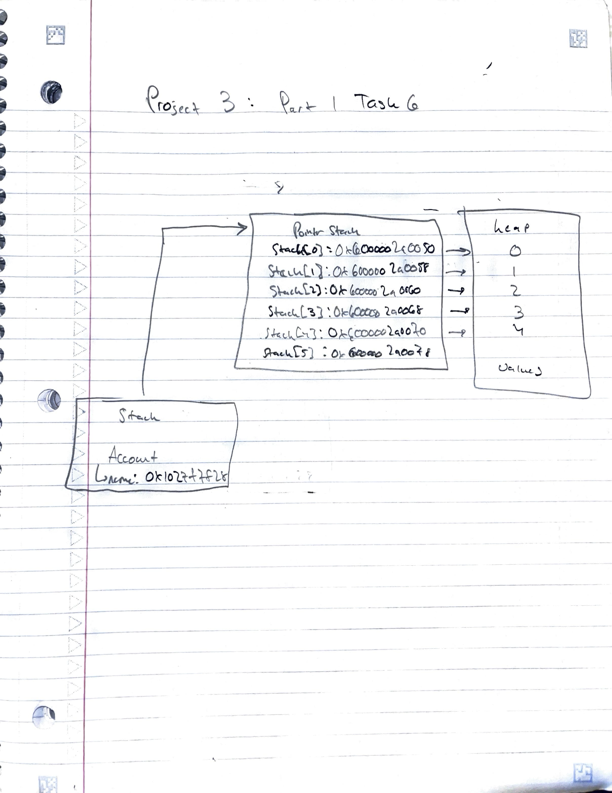 Project 3: Part 1 Task 6
Pointer Stack
Stack[0]: 0x6000002a0050
Stack[1]: 0x6000002a0058
Stack[2]: 0x6000002a0060
Stack[3]: 0x6000002a0068
Stack[4]: 0x6000002a0070
Stack[5]: 0x6000002a0078
heap
0
1
2
3
4
values
Stack
Account
name: